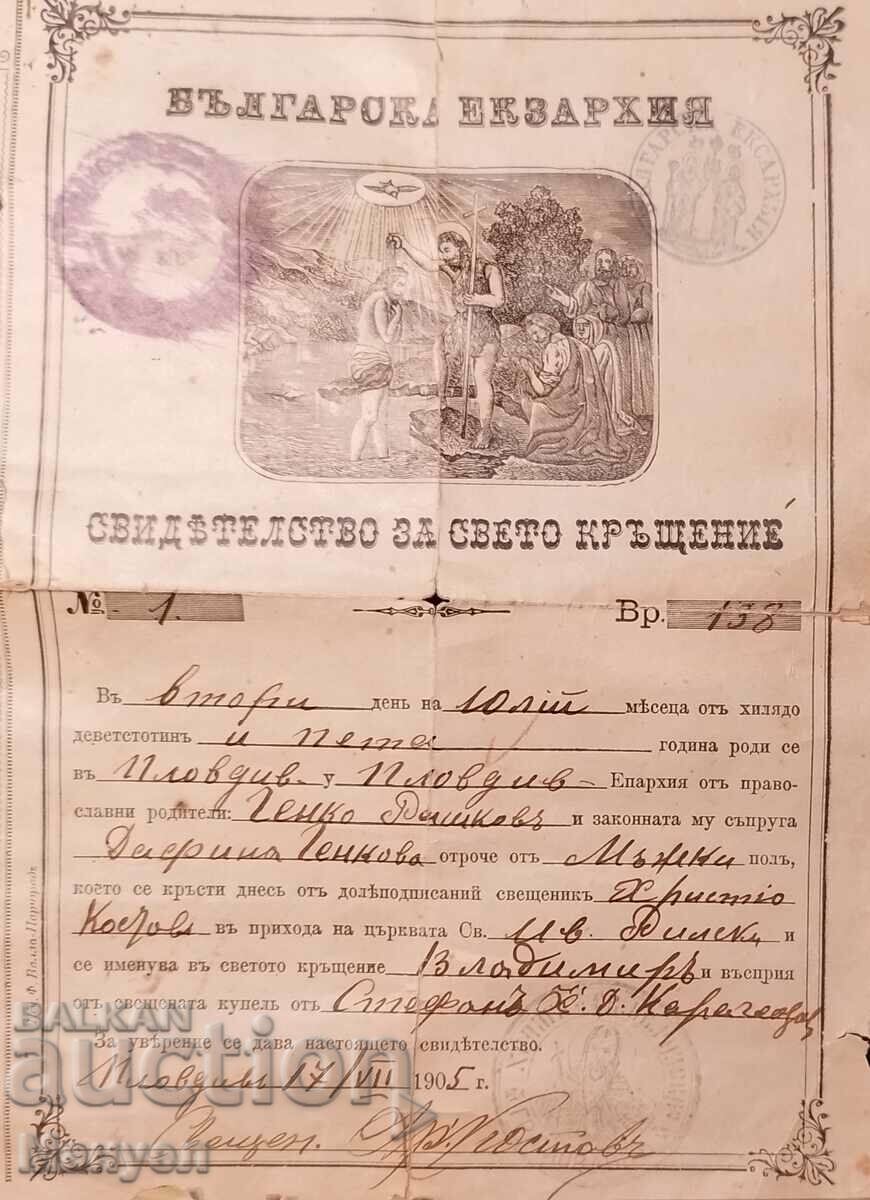 БЪЛГАРСКА ЕКЗАРХИЯ
БЪЛГАРСКА ЕКСАРХИЯ
СВИДѢТЕЛСТВО ЗА СВЕТО КРЪЩЕНИЕ
№ 1. Вр. 138
Въ втори день на Юлій мѣсеца отъ хилядо
деветстотинъ и пета година роди се
въ Пловдив у Пловдив Епархия отъ право-
славни родители: Генко Рашковъ и законната му съпруга
Дафина Генкова отроче от Мъжки полъ,
което се кръсти днесь отъ долѣподписаний свещеникъ Христо
Костов въ прихода на църквата Св. Ив. Рилски и
се именува въ светото кръщение Владимиръ и възприя
отъ свещената купель отъ Стефанъ Х. Д.
За увѣрение се дава настоящето свидѣтелство.
Пловдивъ 17/VII 1905 г.
Свещен. Хр. Костовъ
BALKAN
auction
kenyan